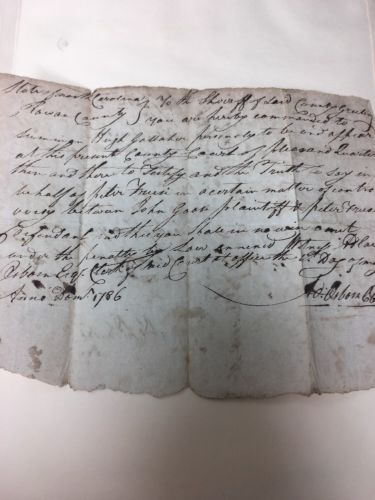 State of North Carolina } To the Sheriff of Said County Greeting
Rowan County } you are hereby commanded to
Summon Hugh Gallaher personely to be and appear
at the present County Court of pleas and Quarter
then and there to Testify and the Truth to Say in
behalf of peter Fruin in a certain matter of contro
versy between John Gook plaintiff & peter
Defendant and this you Shall in no wise omit
under the penalty by Law Witness
Osborn Esqr Clerk of said Court at office the Day of
Anno Domi 1786 Ad: Osborn